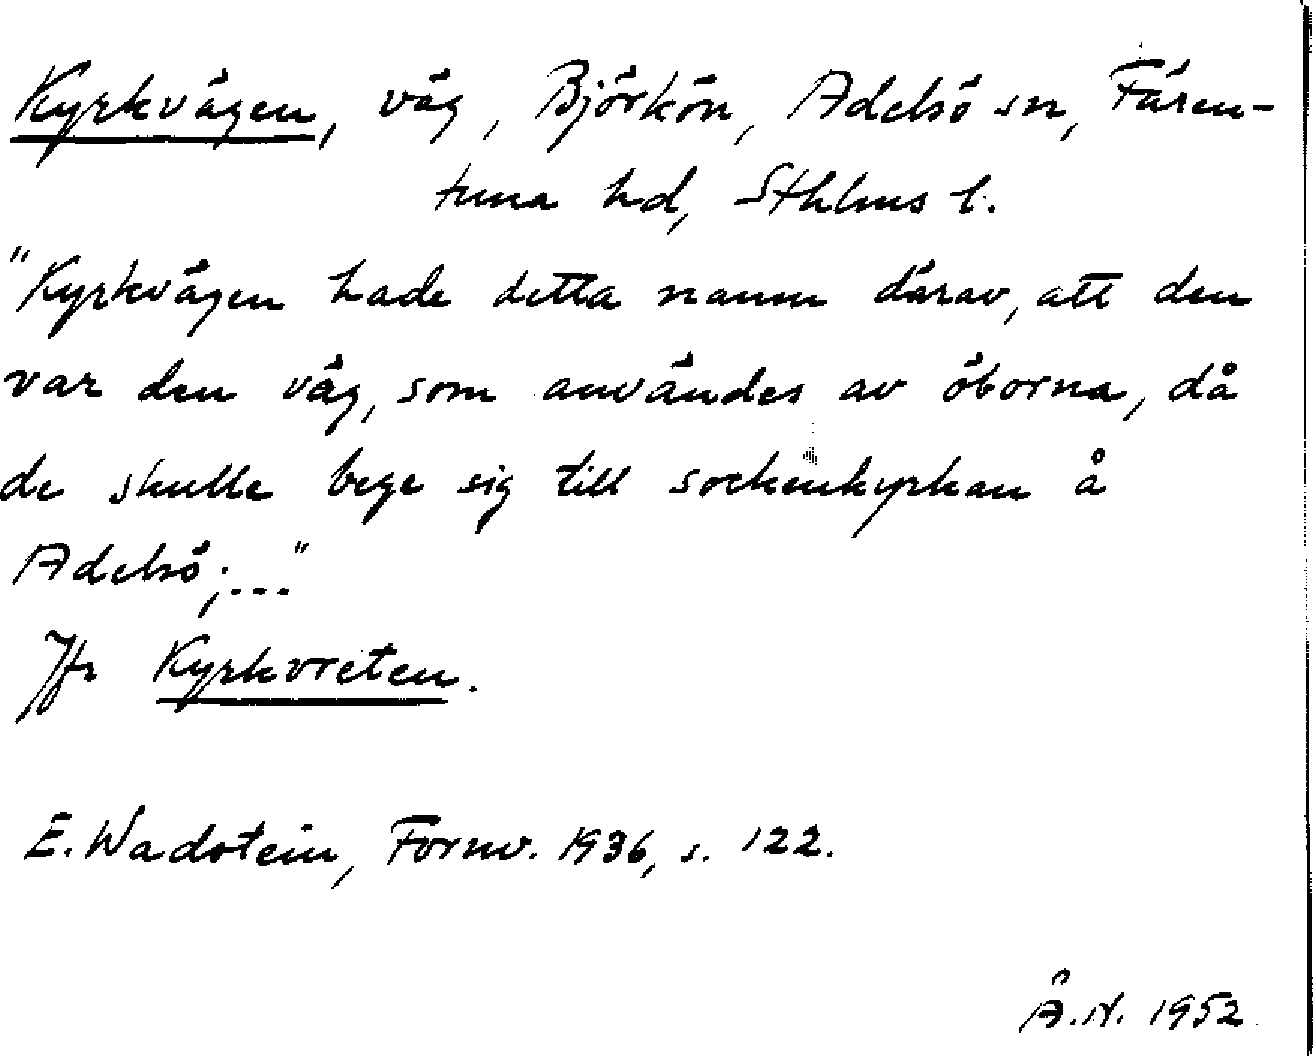 Kyrkvägen, väg, Björkön, Adelsö sn, Fären-
tuna hd, Sthlms l.
"Kyrkvägen hade detta namn därav, att den
var den väg, som användes av öborna, då
de skulle bege sig till sockenkyrkan å
Adelsö; ..."
Jfr Kyrkvreten.
E. Wadstein, Fornv. 1936, s. 122.
Å.N. 1952